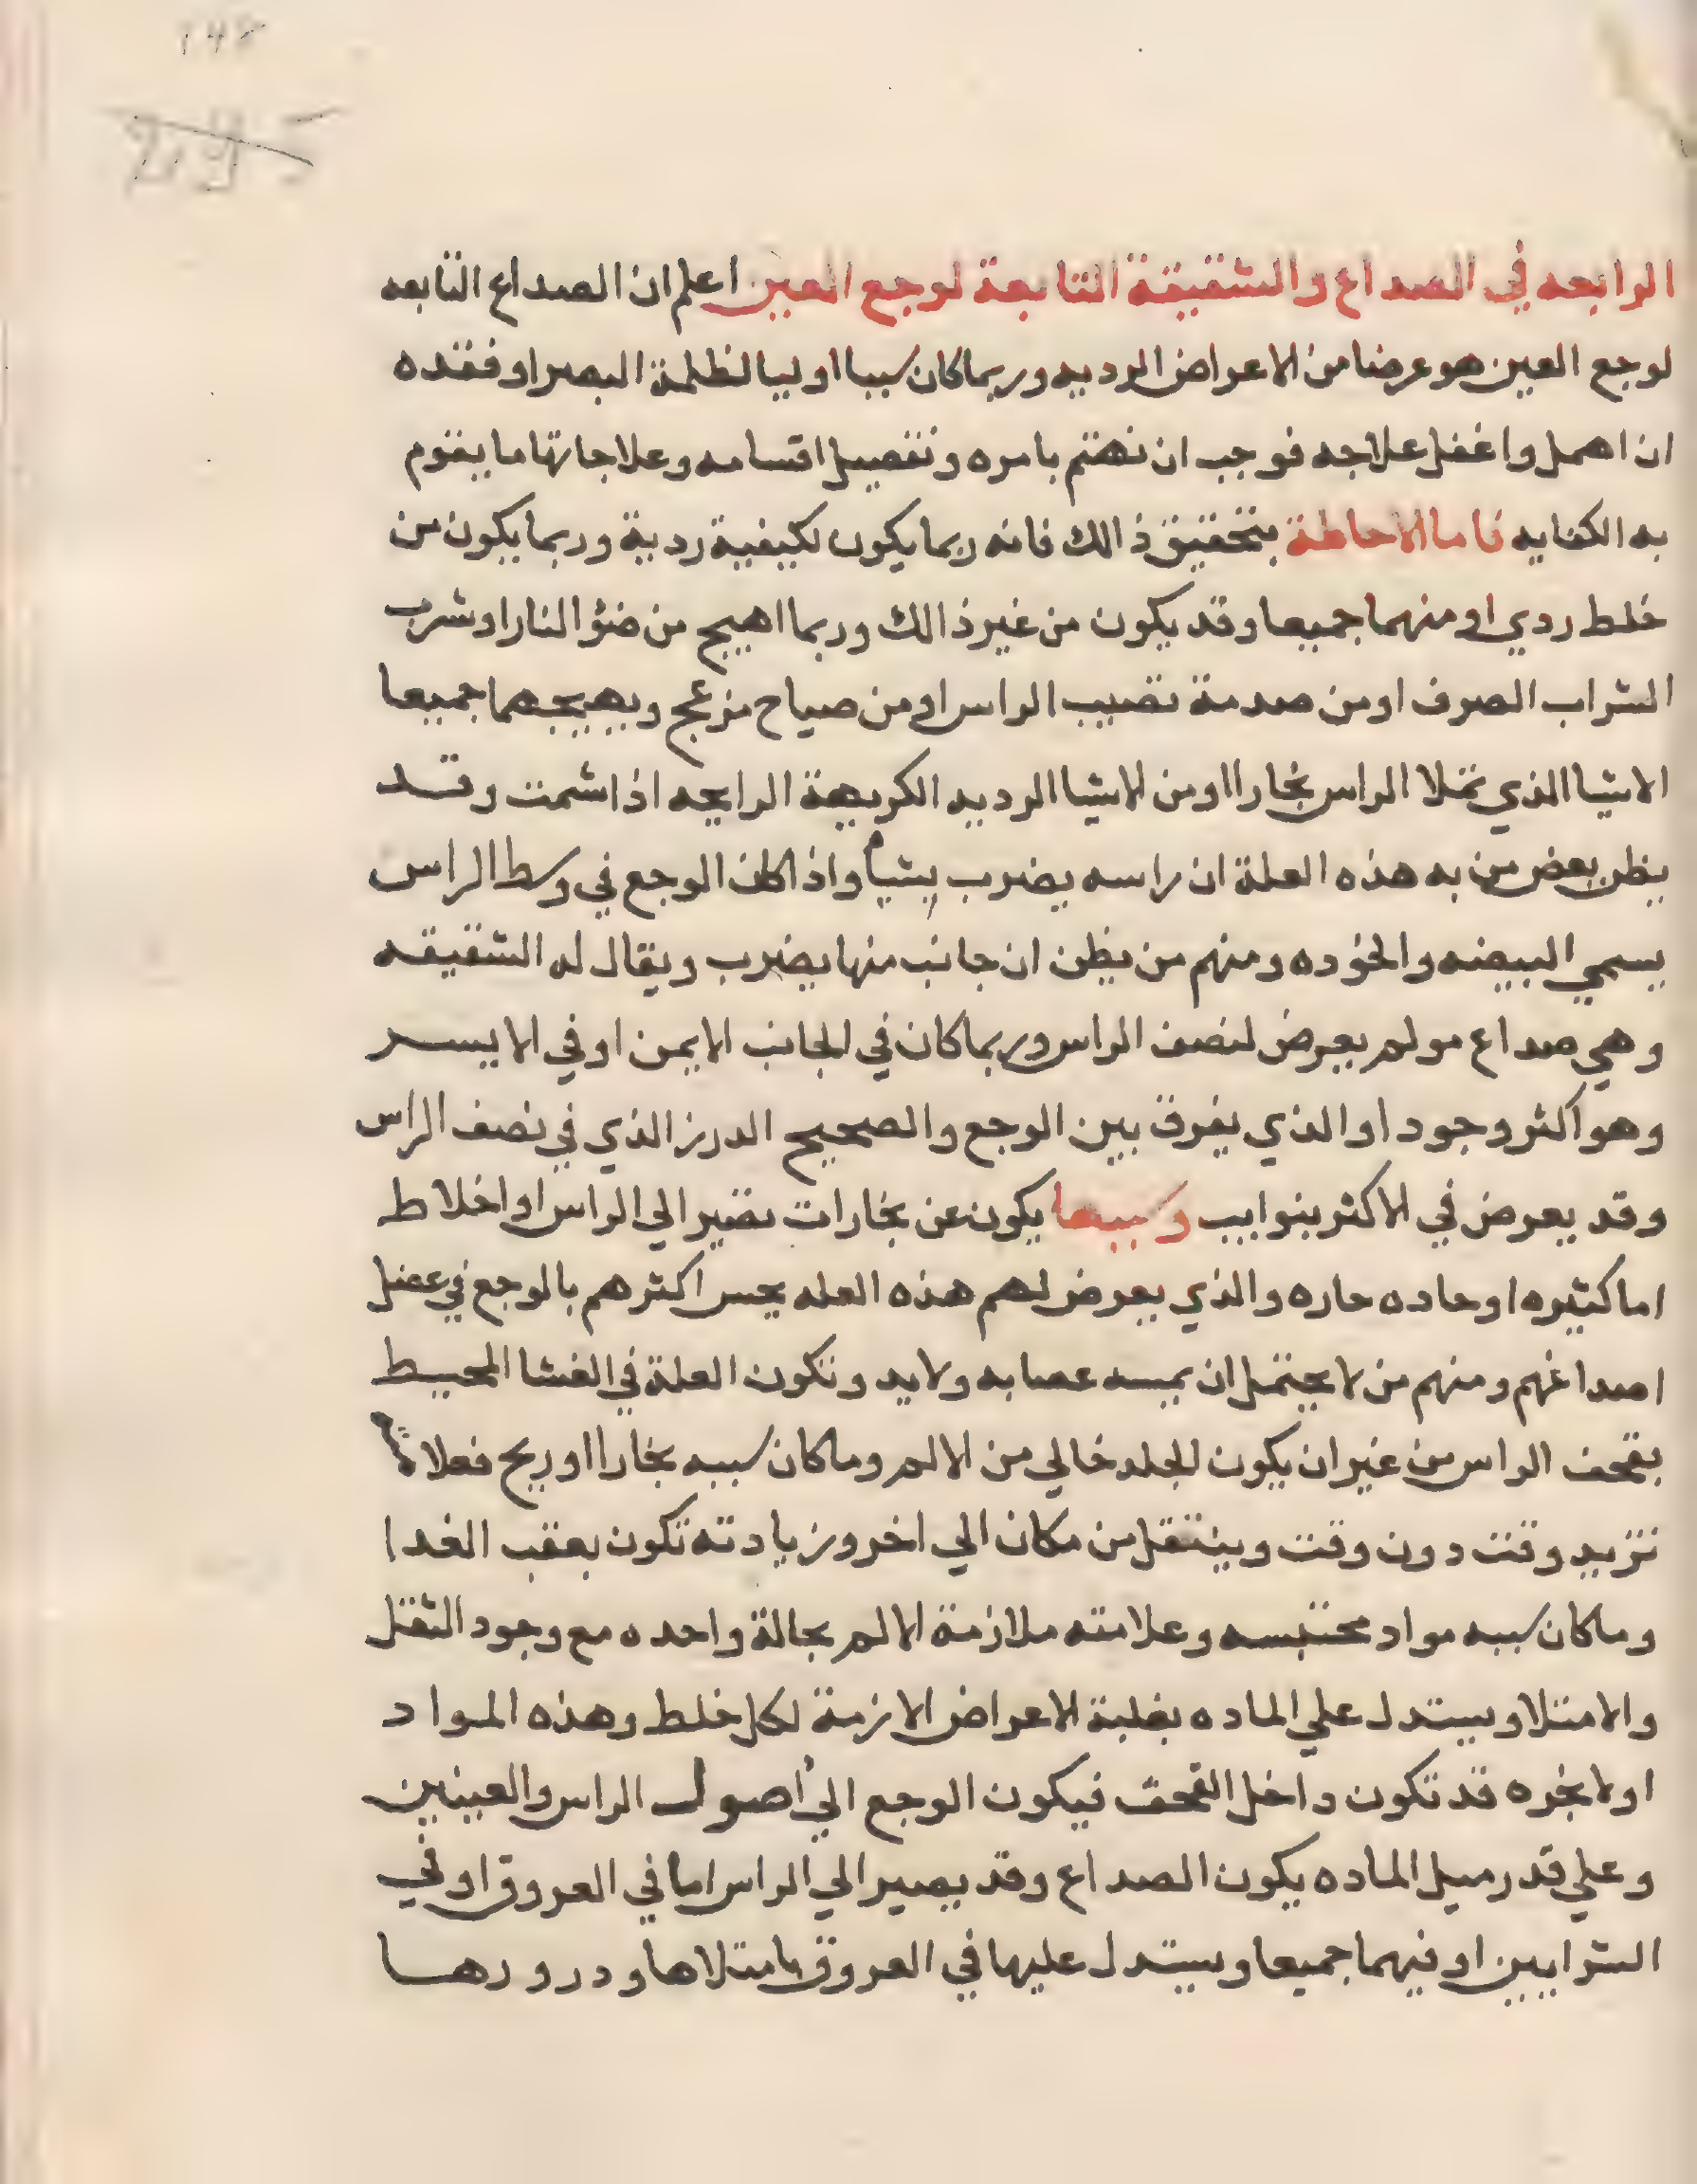 الرابعه في الصداع والشقيقة التابعة لوجع العين اعلم ان الصداع التابعه
لوجع العين هو عرضا من الاعراض الرديه وربما كان سببا اوليا لظلمة البصر او فقده
ان اهمل واغفل علاجه فوجب ان نهتم بامره ونفصيل اقسامه وعلاجاتها ما يقوم
به الكفايه فاما الاحاطة بتحقيق ذالك فانه ربما يكون لكيفية ردية وربما يكون من
خلط ردي او منهما جميعا وقد يكون من غير ذالك وربما اهيج من ضؤ النار او شرب
الشراب الصرف او من صدمة تصيب الراس او من صياح مزعج ويهيجهما جميعا
الاشيا الذي تملا الراس بخارا او من الاشيا الرديه الكريهة الرايحه اذا شمت وقد
يظن بعض من به هذه العلة ان راسه يضرب بشيا واذا كان الوجع في وسط الراس
يسمي البيضه والخوده ومنهم من يظن ان جانب منها يضرب ويقال له الشقيقه
وهي صداع مولم يعرض لنصف الراس وربما كان في الجانب الايمن او في الايسر
وهو اكثر وجودا والذي يفرق بين الوجع والصحيح الدرز الذي في نصف الراس
وقد يعرض في الاكثر بنوايب وسببها يكون عن بخارات تصير الي الراس او اخلاط
اما كثيره او حاده حاره والذي يعرض لهم هذه العله يحس اكثرهم بالوجع في عضل
اصداغهم ومنهم من لا يحتمل ان يمسه عصابه ولا يد وتكون العلة في الغشا المحيط
بقحف الراس من غير ان يكون الجلد خالي من الالم وما كان سببه بخارا او ريح فعلاماته
تزيد وقت دون وقت وينتقل من مكان الي اخر وزيادته تكون بعقب الغدا
وما كان سببه مواد محتبسه وعلامته ملازمة الالم بحالة واحده مع وجود الثقل
والامتلا ويستدل علي الماده بغلبة الاعراض الازمة لكل خلط وهذه المواد
او الابخره قد تكون داخل القحف فيكون الوجع الي اصول الراس والعينين
وعلي قدر ميل الماده يكون الصداع وقد يصير الي الراس اما في العروق او في
الشرايين او فيهما جميعا ويستدل عليها في العروق بامتلاها ودرورها